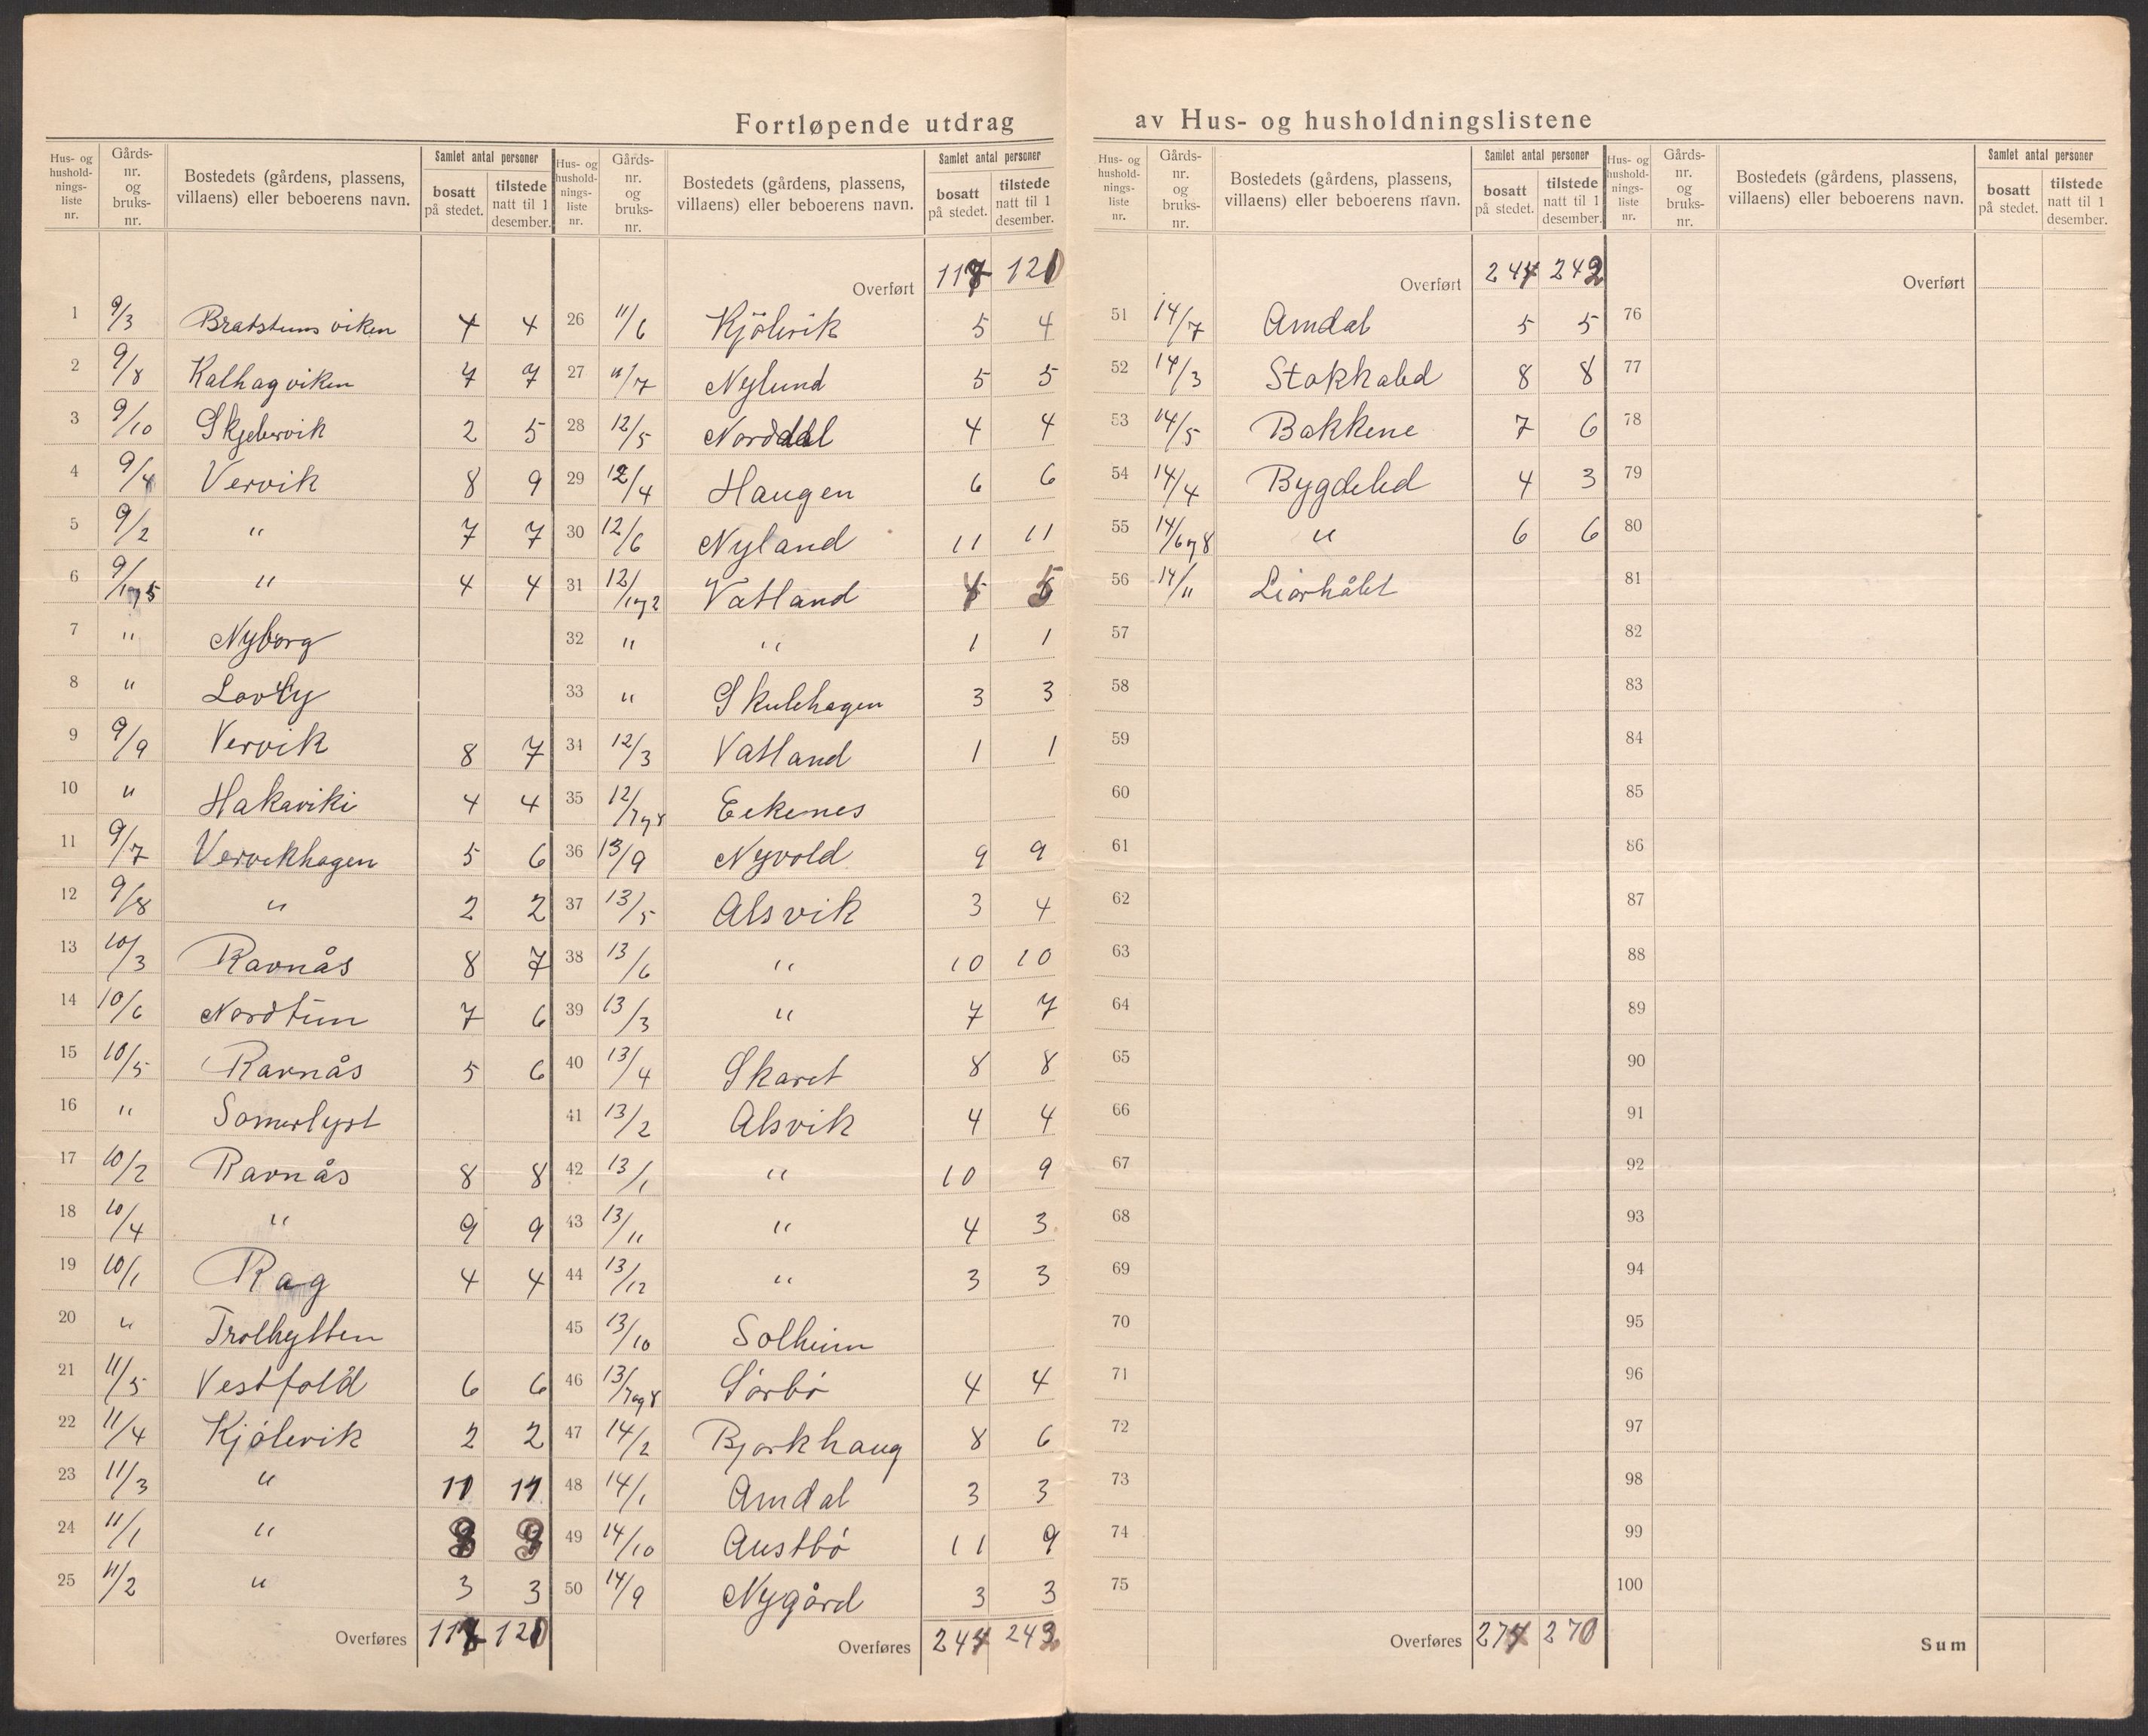 Fortløpende utdrag av Hus- og husholdningslistene
Hus- og husholdningsliste nr. Gårds-nr. og bruks-nr. Bostedets (gårdens, plassens, villaens) eller beboerens navn. Samlet antal personer bosatt på stedet. tilstede natt til 1 desember.
1 9/3 Bratstumsviken 4 4
2 9/8 Kalhagviken 7 7
3 9/10 Skjebervik 2 5
4 9/4 Vervik 8 9
5 9/2 " 7 7
6 9/1og5 " 4 4
7 " Nyborg
8 " Lovly
9 9/9 Vervik 8 7
10 " Hakaviki 4 4
11 9/7 Vervikhagen 5 6
12 9/8 " 2 2
13 10/3 Ravnås 8 7
14 10/6 Nordtun 7 6
15 10/5 Ravnås 5 6
16 " Somerlyst
17 10/2 Ravnås 8 8
18 10/4 " 9 9
19 10/1 Rag 4 4
20 " Trolhytten
21 11/5 Vestfold 6 6
22 11/4 Kjølevik 2 2
23 11/3 " 11 11
24 11/1 "
25 11/2 " 3 3
Overføres
Hus- og husholdningsliste nr. Gårds-nr. og bruks-nr. Bostedets (gårdens, plassens, villaens) eller beboerens navn. Samlet antal personer bosatt på stedet. tilstede natt til 1 desember.
Overført
26 11/6 Kjölevik 5 4
27 11/7 Nylund 5 5
28 12/5 Norddal 4 4
29 12/4 Haugen 6 6
30 12/6 Nyland 11 11
31 12/1og2 Vatland 5
32 " " 1 1
33 " Skulehagen 3 3
34 12/3 Vatland 1 1
35 12/7og8 Eekenes
36 13/9 Nyvold 9 9
37 13/5 Alsvik 3 4
38 13/6 " 10 10
39 13/3 " 7 7
40 13/4 Skaret 8 8
41 13/2 Alsvik 4 4
42 13/1 " 10 9
43 13/11 " 4 3
44 13/12 " 3 3
45 13/10 Solheim
46 13/7og8 Sørbø 4 4
47 14/2 Bjørkhaug 8 6
48 14/1 Amdal 3 3
49 14/10 Austbø 11 9
50 14/9 Nygård 3 3
Overføres
Hus- og husholdningsliste nr. Gårds-nr. og bruks-nr. Bostedets (gårdens, plassens, villaens) eller beboerens navn. Samlet antal personer bosatt på stedet. tilstede natt til 1 desember.
Overført 242
51 14/7 Amdal 5 5
52 14/3 Stakkaled 8 8
53 14/5 Bakkene 7 6
54 14/4 Bygdeled 4 3
55 14/6og8 " 6 6
56 14/11 Liarhålet
57
58
59
60
61
62
63
64
65
66
67
68
69
70
71
72
73
74
75
Overføres 270
Hus- og husholdningsliste nr. Gårds-nr. og bruks-nr. Bostedets (gårdens, plassens, villaens) eller beboerens navn. Samlet antal personer bosatt på stedet. tilstede natt til 1 desember.
Overført
76
77
78
79
80
81
82
83
84
85
86
87
88
89
90
91
92
93
94
95
96
97
98
99
100
Sum